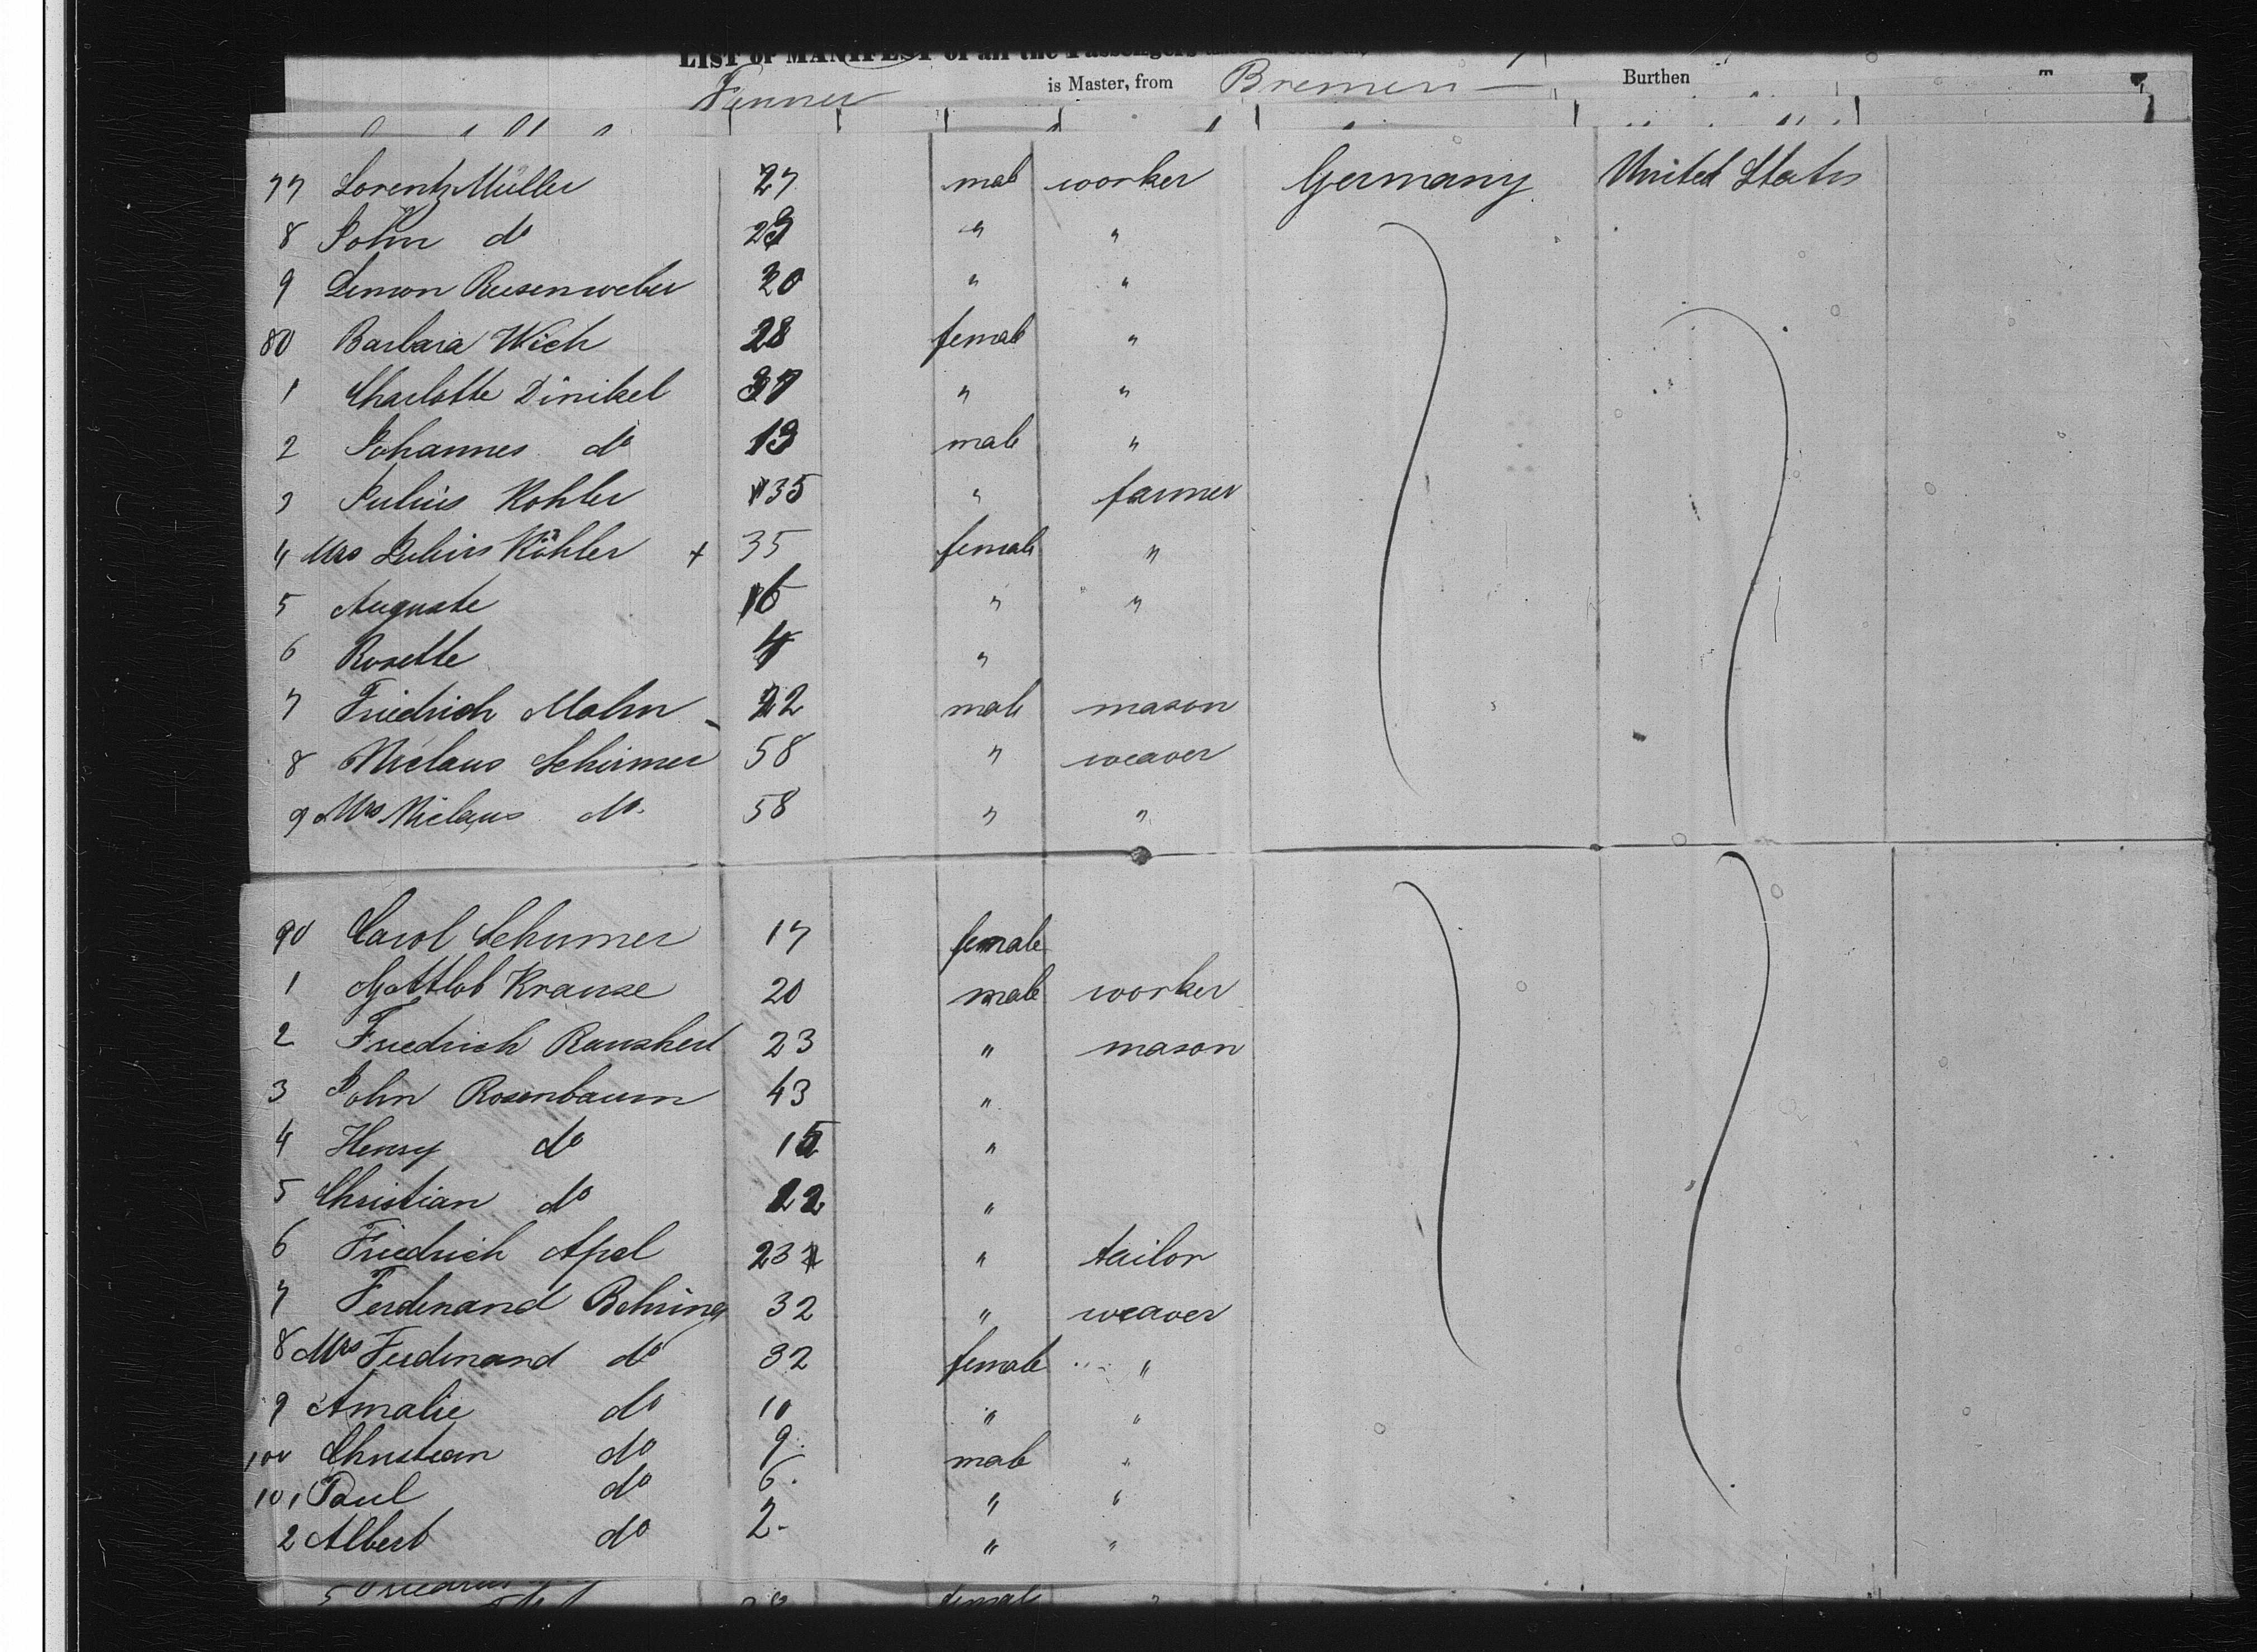 LIST or MANIFEST of all the Passengers
Fenner is Master, from Bremen Burthen T
77 Lorentz Müller 27 male worker Germany United States
8 John do 23 " "
9 Simon Reusenweber 20 " "
80 Barbara Wich 28 female "
1 Charlotte Dinikel 37 " "
2 Johannes do 13 male "
3 Julius Kohler 35 " farmer
4 Mrs Julius Köhler + 35 female "
5 Auguste 6 " "
6 Rosette 4 "
7 Friedrich Malm 22 male mason
8 Niclaus Schirmer 58 " weaver
9 Mrs Niclaus do. 58 " "
90 Carol Schirmer 17 female
1 Gottlob Krause 20 male worker
2 Friedrich Rauskert 23 " mason
3 John Rosenbaum 43 "
4 Henry do 15 "
5 Christian do 22 "
6 Friedrich Apel 23 " tailor
7 Ferdinand Behring 32 " weaver
8 Mrs Ferdinand do 32 female "
9 Amalie do 10 " "
100 Christian do 9. male "
101 Paul do 6. " "
2 Albert do 2- " "
5 Friedrich
female "